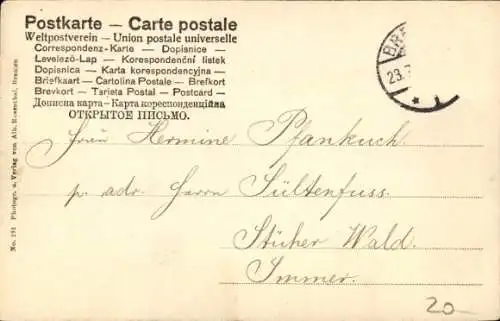 Postkarte — Carte postale
Weltpostverein — Union postale universelle
Correspondenz-Karte — Dopisnice —
Levelező-Lap — Korespondenční listek
Dopisnica — Karta korespondencyjna —
Briefkaart — Cartolina Postale — Brefkort
Brevkort — Tarjeta Postal — Postcard —
Дописна карта — Карта кореспонденційна
ОТКРЫТОЕ ПИСЬМО.
BRE
23.7
Frau Hermine Pfankuch
p. adr. Herrn Sültenfuss.
Stüher Wald.
Immer.
20
No. 191 Photogr. u. Verlag von Alb. Rosenthal, Bremen